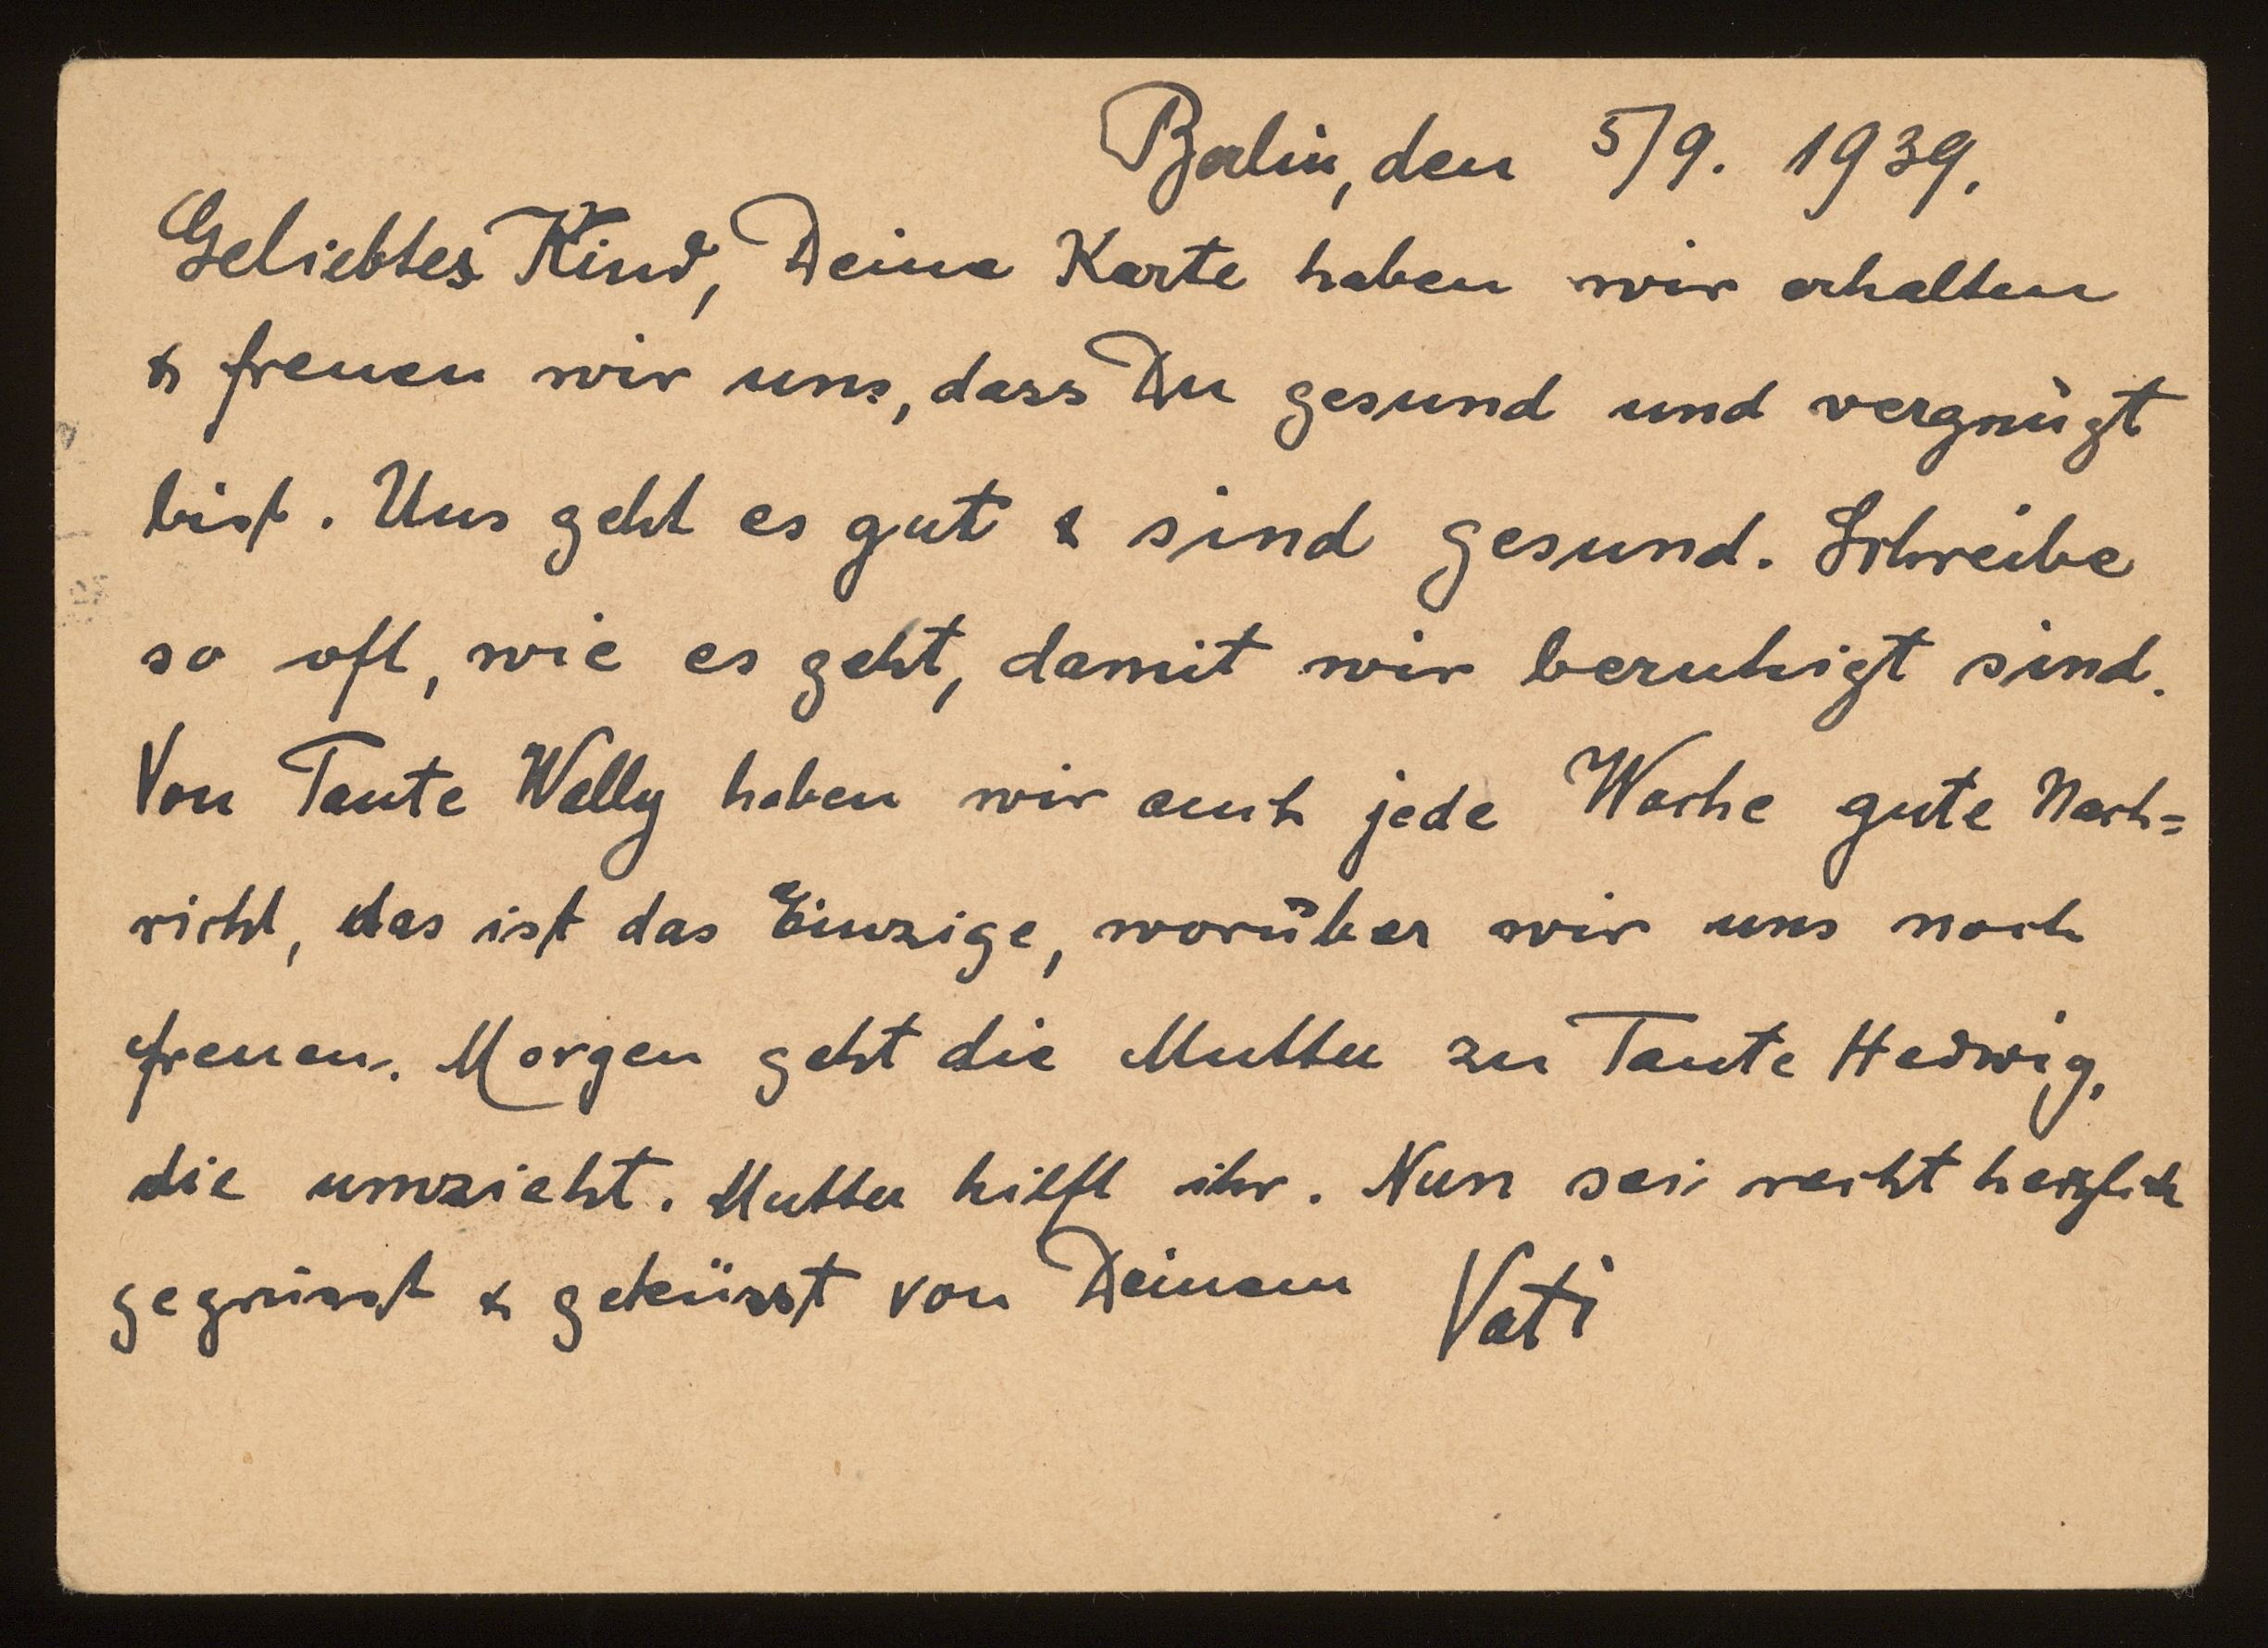 Berlin, den 5/9. 1939.
Geliebtes Kind, Deine Karte haben wir erhalten
& freuen wir uns, dass Du gesund und vergnügt
bist. Uns geht es gut & sind gesund. Schreibe
so oft, wie es geht, damit wir beruhigt sind.
Von Tante Wally haben wir auch jede Woche gute Nach=
richt, das ist das Einzige, worüber wir uns noch
freuen. Morgen geht die Mutter zu Tante Hedwig,
die umzieht. Mutter hilft ihr. Nun sei recht herzlich
gegrüsst & geküsst von Deinem Vati